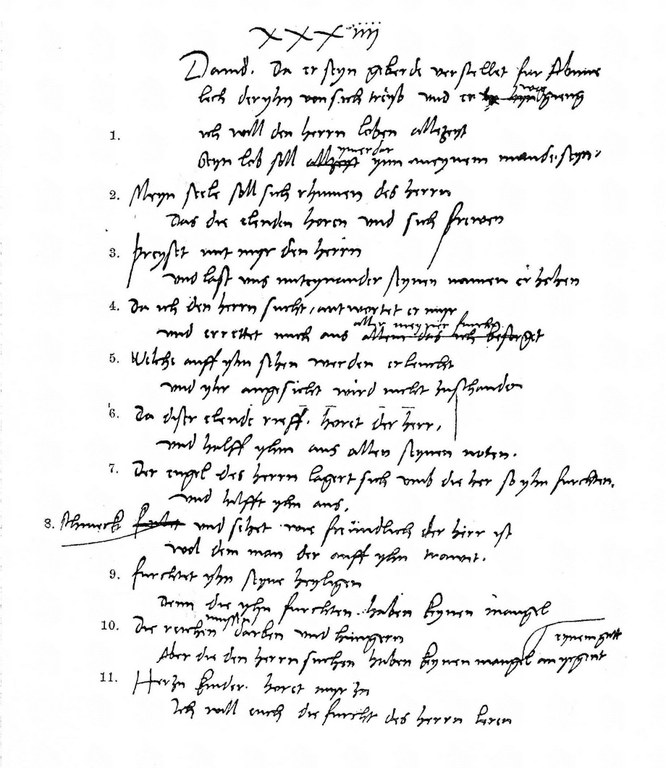 XXXiiij
Dauid. da er seyn geberde verstellet fur Abime
lech der yhn von sich treyb und er weg gieng
1. ich will den herrn loben alletzeyt
ymerdar
Seyn lob soll alltzeyt ynn meynem munde seyn.
2. Meyn seele soll sich rhumen des herrn
Das die elenden horen und sich frewen
3. Preyset mit myr den herrn
und last uns miteynander seynen namen erhohen
4. Da ich den herrn sucht, antwortet er myr
aller meyner furcht.
und errettet mich aus allem das ich besorget
5. Welche auff yhn sehen werden erleucht
und yhr angesicht wird nicht zuschanden
6. Da diser elende rieff. horet der herr,
und halff yhm aus allen seynen noten.
7. Der engel des herrn lagert sich umb die her so yhn furchten.
und hilfft yhn aus.
8. schmeckt und sehet wie freundlich der herr ist
wol dem man der auff yhn trawet.
9. furchtet yhn seyne heyligen
Denn die yhn furchten. haben keynen mangel
mussen
10. Die reichen darben und hungern
eynem gutt
Aber die den herrn suchen haben keynen mangel an yrgent
11. Her zu kinder. horet myr zu
Ich will euch die furcht des herrn leren